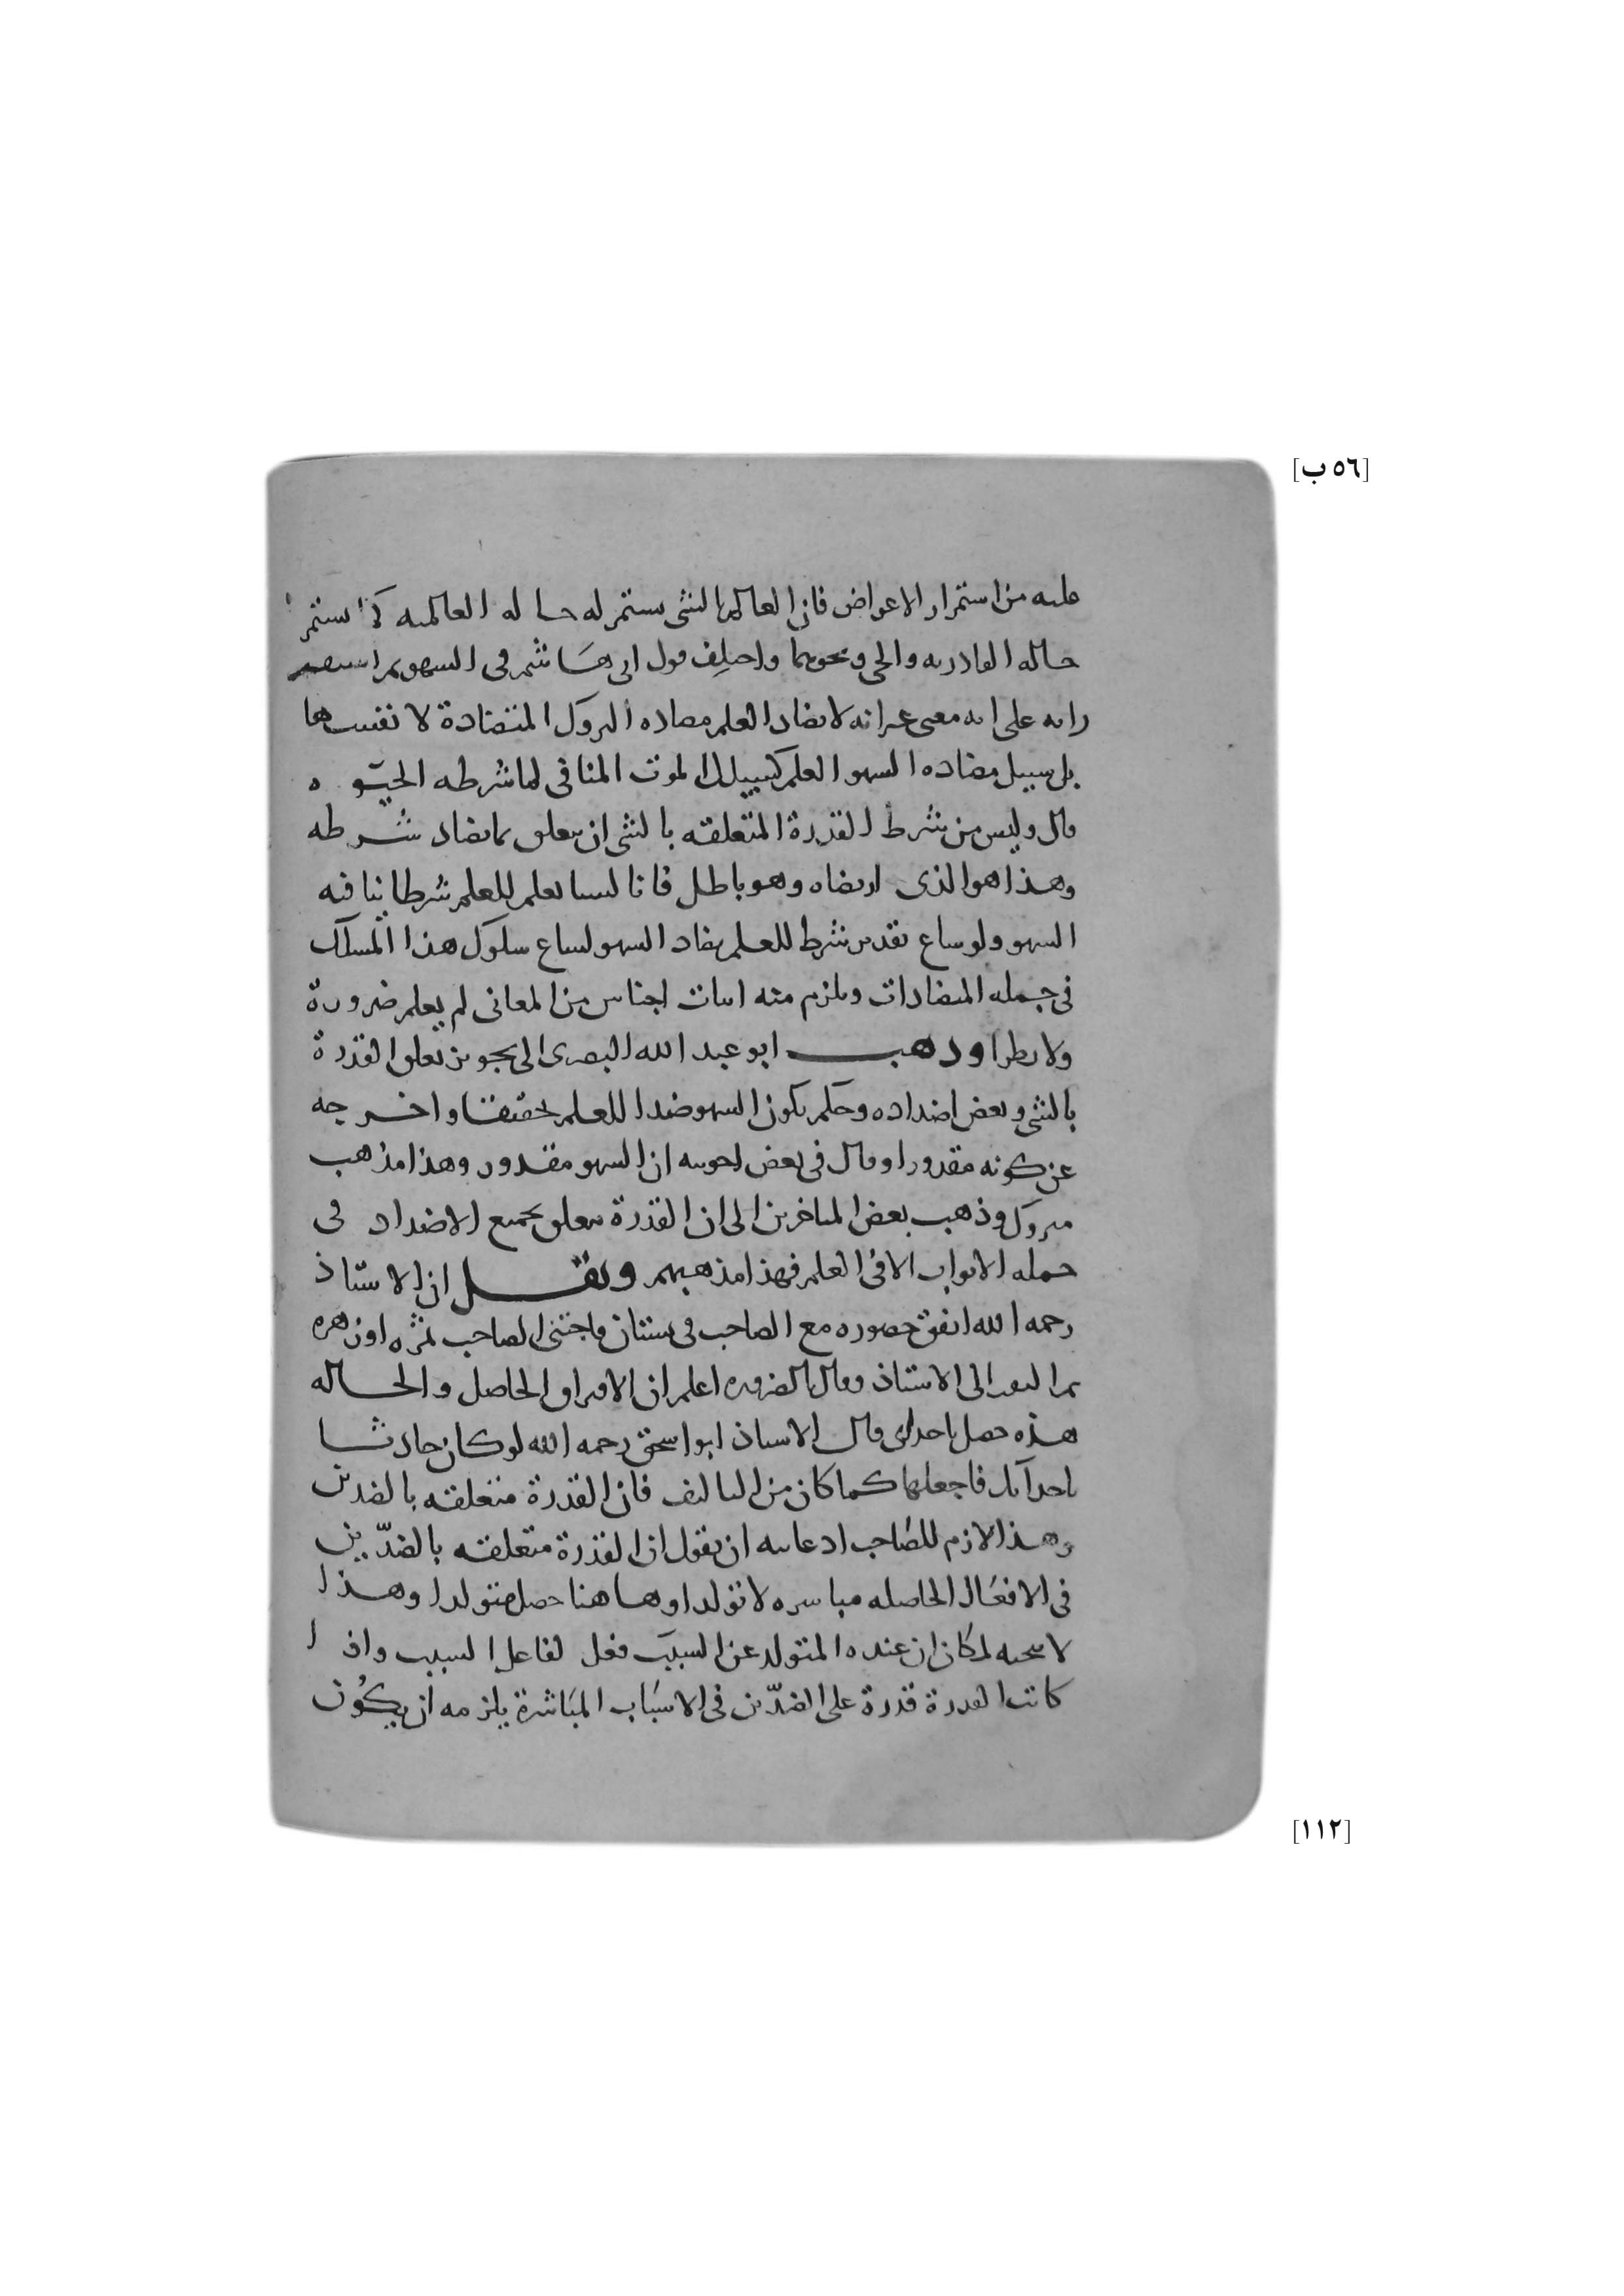 [٥٦ ب]
عليه من استمرار الاعراض فان العالم بالشى يستمر له حاله العالميه كما يستمر
حاله القادريه والحى ونحوهما واختلف قول ابى هاشم فى السهو ثم استقر
رايه على انه معنى غير انه لا يضاد العلم مضاده التروك المتضادة لانفسها
بل سبيل مضاده السهو العلم كسبيل الموت المنافى لما شرطه الحيوه
قال وليس من شرط القدرة المتعلقه بالشى ان تتعلق بما يضاد شرطه
وهذا هو الذى ارتضاه وهو باطل فانا لسنا نعلم للعلم شرطا ينافيه
السهو ولو ساغ تقدير شرط للعلم يضاد السهو لساغ سلوك هذا المسلك
فى جمله المتضادات ويلزم منه اثبات اجناس من المعانى لم يعلم ضرورة
ولا نظرا وذهب ابو عبد الله البصرى الى تجويز تعلق القدرة
بالشى وبعض اضداده وحكم بكون السهو ضدا للعلم تحقيقا واخرجه
عن كونه مقدورا وقال فى بعض اجوبته ان السهو مقدور وهذا مذهب
متروك وذهب بعض المتاخرين الى ان القدرة تتعلق بجميع الاضداد فى
جمله الابواب الا فى العلم فهذا مذهبهم ونقل ان الاستاذ
رحمه الله اتفق حضوره مع الصاحب فى بستان فاجتنى الصاحب ثمره او زهره
ثم التفت الى الاستاذ وقال بالضروره اعلم ان الافتراق الحاصل والحاله
هذه حصل باحداثى قال الاستاذ ابو اسحق رحمه الله لو كان حادثا
باحداثك فاجعلها كما كان من التاليف فان القدرة متعلقه بالضدين
وهذا لازم للصاحب اذ غايته ان يقول ان القدرة متعلقه بالضدّين
فى الافعال الحاصله مباشره لا تولدا وها هنا حصل متولدا وهذا
لا ينجيه لمكان ان عنده المتولد عن السبب فعل لفاعل السبب واذا
كانت القدرة قدرة على الضدّين فى الاسباب المباشرة يلزمه ان يكون
[١١٢]